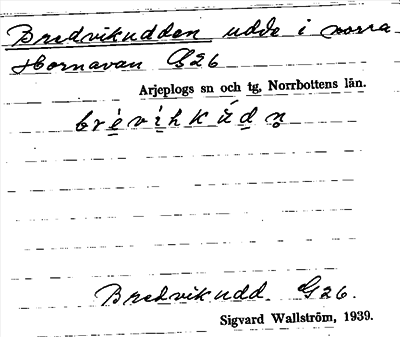 Bredvikudden udde i norra
Hornavan G26
Arjeplogs sn och tg, Norrbottens län.
Bredvikudd. G26.
Sigvard Wallström, 1939.